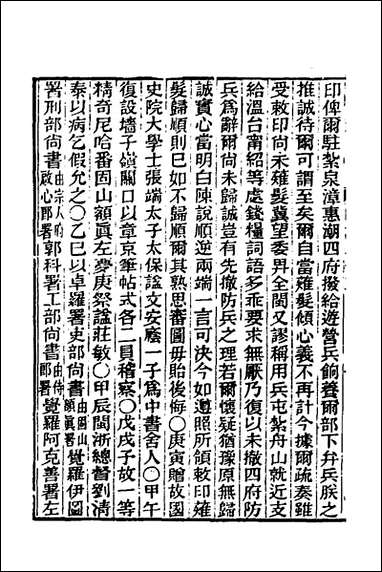 印俾爾駐紮泉漳惠潮四府撥給遊營兵餉養爾部下弁兵朕之
推誠待爾可謂至矣爾自當薙髮傾心義不再計今據爾疏奏雖
受敕印尚未薙髮冀望委畀全閩又謬稱用兵屯紮舟山就近支
給溫台甯紹等處錢糧詞語多乖要求無厭乃復以未撤四府防
兵爲辭爾尚未歸誠豈有先撤防兵之理若爾懷疑猶豫原無歸
誠實心當明白陳說順逆兩端一言可決今如遵照所頒敕印薙
髮歸順則已如不歸順爾其熟思審圖毋貽後悔〇庚寅贈故國
史院大學士張端太子太保諡文安廕一子爲中書舍人〇甲午
復設墻子嶺關口以章京筆帖式各二員稽察〇戊戌予故一等
精奇尼哈番固山額眞左夢庚祭諡莊敏〇甲辰閩浙總督劉清
泰以病乞假允之〇乙巳以卓羅署吏部尚書由固山額眞署覺羅伊圖
署刑部尚書由宗人府啟心郎署郭科署工部尚書由侍郎署覺羅阿克善署左